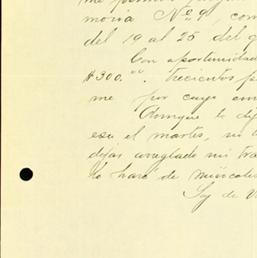 me
moria No. 9, com
del 19 al 25 del q
Con oportunidad
$300.00. trecientos p
me por cuyo en
Aunque le dij
esa el martes, su
dejar arreglado mi tra
lo haré de miércoles
Soy de V